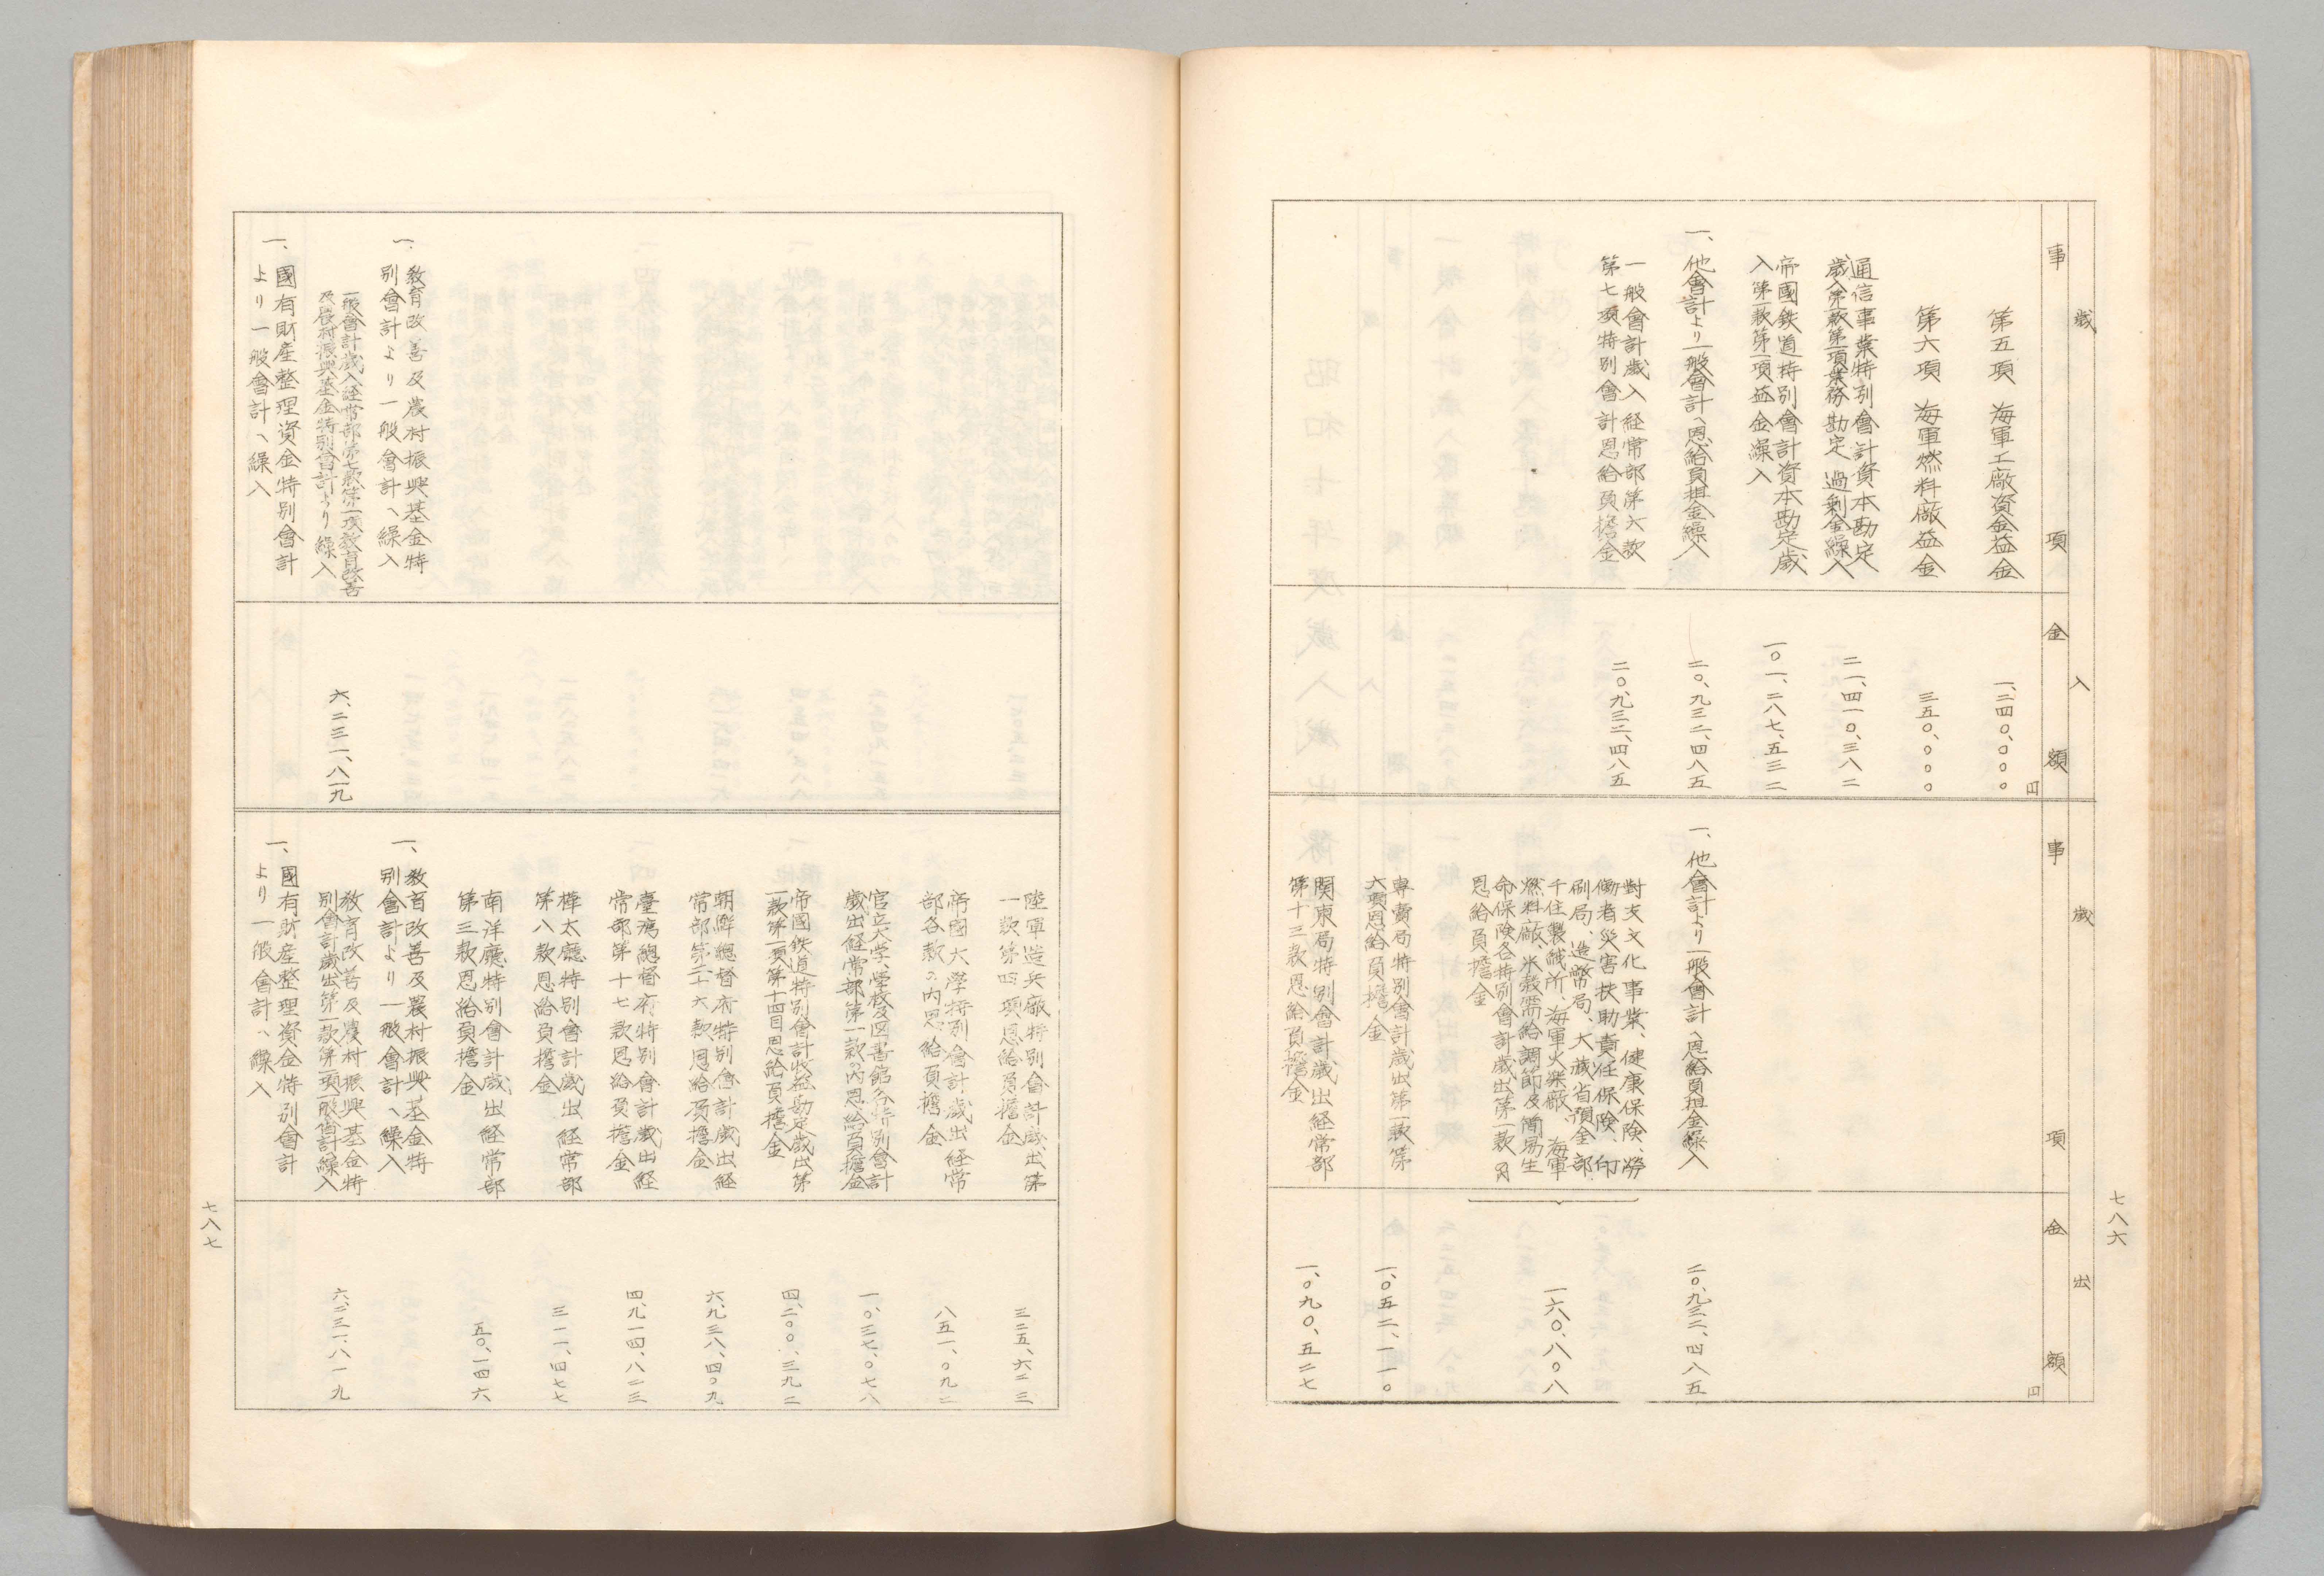 七八六
歳入
歳出
事項
金額
事項
金額
円
円
第五項 海軍工廠資金益金
一、二四〇、〇〇〇
第六項 海軍燃料廠益金
三五〇、〇〇〇
通信事業特別會計資本勘定
歳入第一款第一項業務勘定過剰金繰入
二一、四一〇、三八二
帝國鉄道特別會計資本勘定歳
入第一款第一項益金繰入
一〇一、二八七、五三二
一、他會計より一般會計へ恩給負担金繰入
二〇、九三二、四八五
一般會計歳入経常部第六款
第七項特別會計恩給負擔金
二〇、九三二、四八五
一、他會計より一般會計へ恩給負担金繰入
二〇、九三二、四八五
對支文化事業、健康保険、勞
働者災害扶助責任保険、印
刷局、造幣局、大蔵省預金部
千住製絨所、海軍火薬廠、海軍
燃料廠、米穀需給調節及簡易生
命保険各特別會計歳出第一款ノ内
恩給負擔金
一六〇、八〇八
專賣局特別會計歳出第一款第
六項恩給負擔金
一、〇五二、一一〇
関東局特別會計歳出経常部
第十三款恩給負擔金
一、〇九〇、五二七
陸軍造兵廠特別會計歳出第
一款第四項恩給負擔金
三二五、六二三
帝國大學特別會計歳出経常
部各款ノ内恩給負擔金
八五一、〇九二
官立大学、学校及図書館各特別會計
歳出経常部第一款ノ内恩給負擔金
一、〇三七、〇七八
帝國鉄道特別會計收益勘定歳出第
一款第一項第十四目恩給負擔金
四、二〇〇、三九二
朝鮮總督府特別會計歳出経
常部第二十六款恩給負擔金
六、九三八、四〇九
臺湾總督府特別會計歳出経
常部第十七款恩給負擔金
四、九一四、八二三
樺太廳特別會計歳出経常部
第八款恩給負擔金
三一一、四七七
南洋廳特別會計歳出経常部
第三款恩給負擔金
五〇、一四六
一、教育改善及農村振興基金特
別會計より一般會計へ繰入
一般會計歳入経常部第七款第一項教育改善
及農村振興基金特別會計より繰入
六、二三一、八一九
一、國有財産整理資金特別會計
より一般會計へ繰入
一、教育改善及農村振興基金特
別會計より一般會計へ繰入
教育改善及農村振興基金特
別會計歳出第一款第一項一般會計繰入
六、二三一、八一九
一、國有財産整理資金特別會計
より一般會計へ繰入
七八七